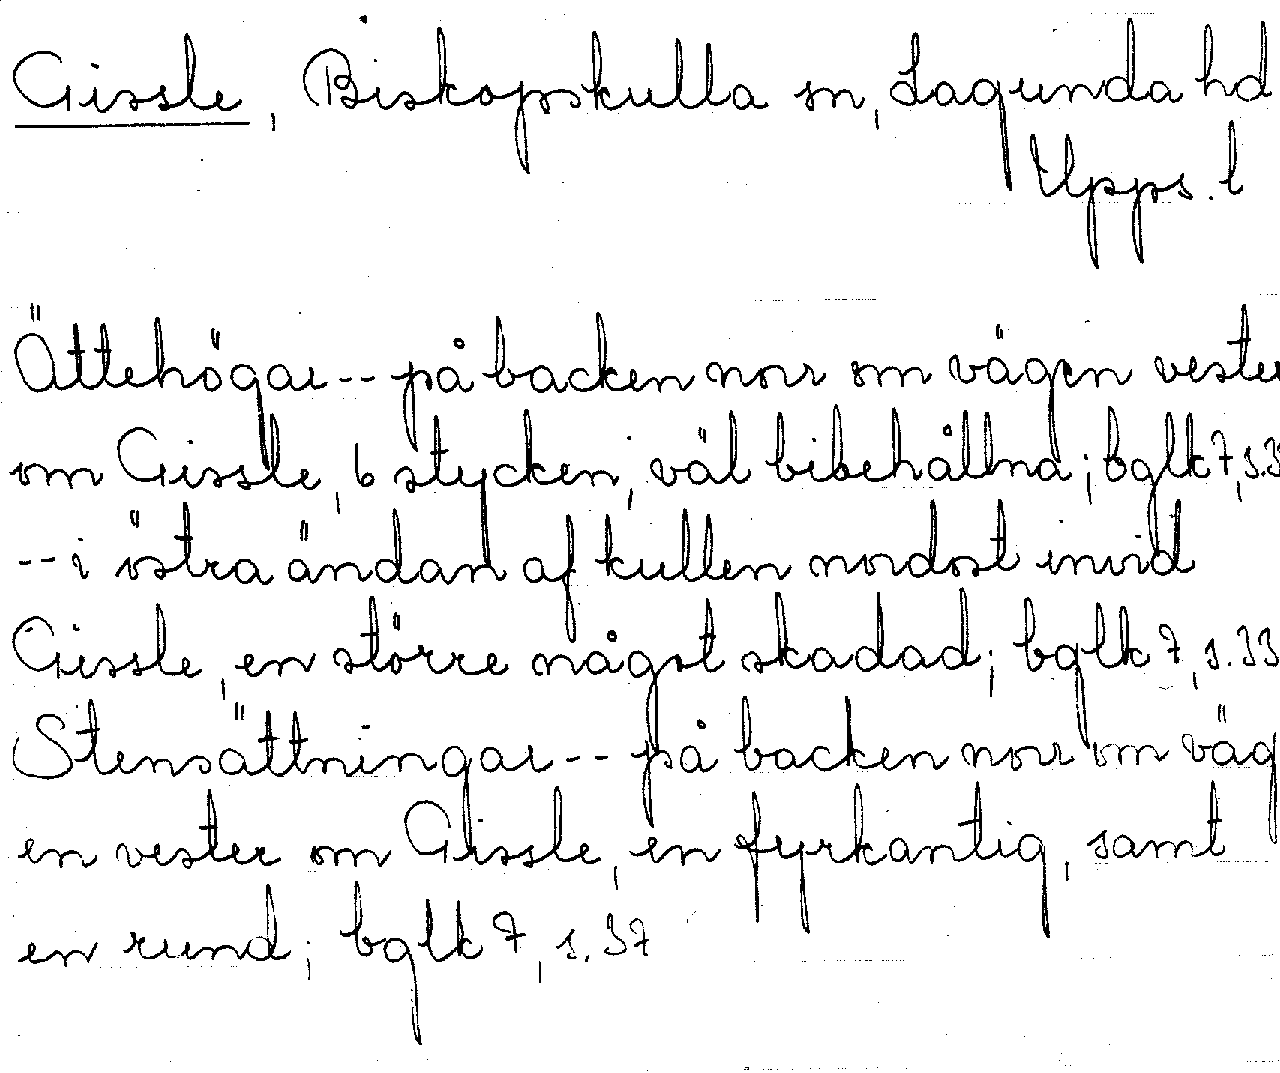 Gissle, Biskopskulla sn, Lagunda hd
Upps. l
Ättehögar -- på backen norr om vägen vester
om Gissle, 6 stycken, väl bibehållna; bglk 7, s. 3
-- i östra ändan af kullen nordost invid
Gissle, en större något skadad; bglk 7, s. 33
Stensättningar -- på backen norr om väg
en vester om Gissle, en fyrkantig, samt
en rund; bglk 7, s. 37